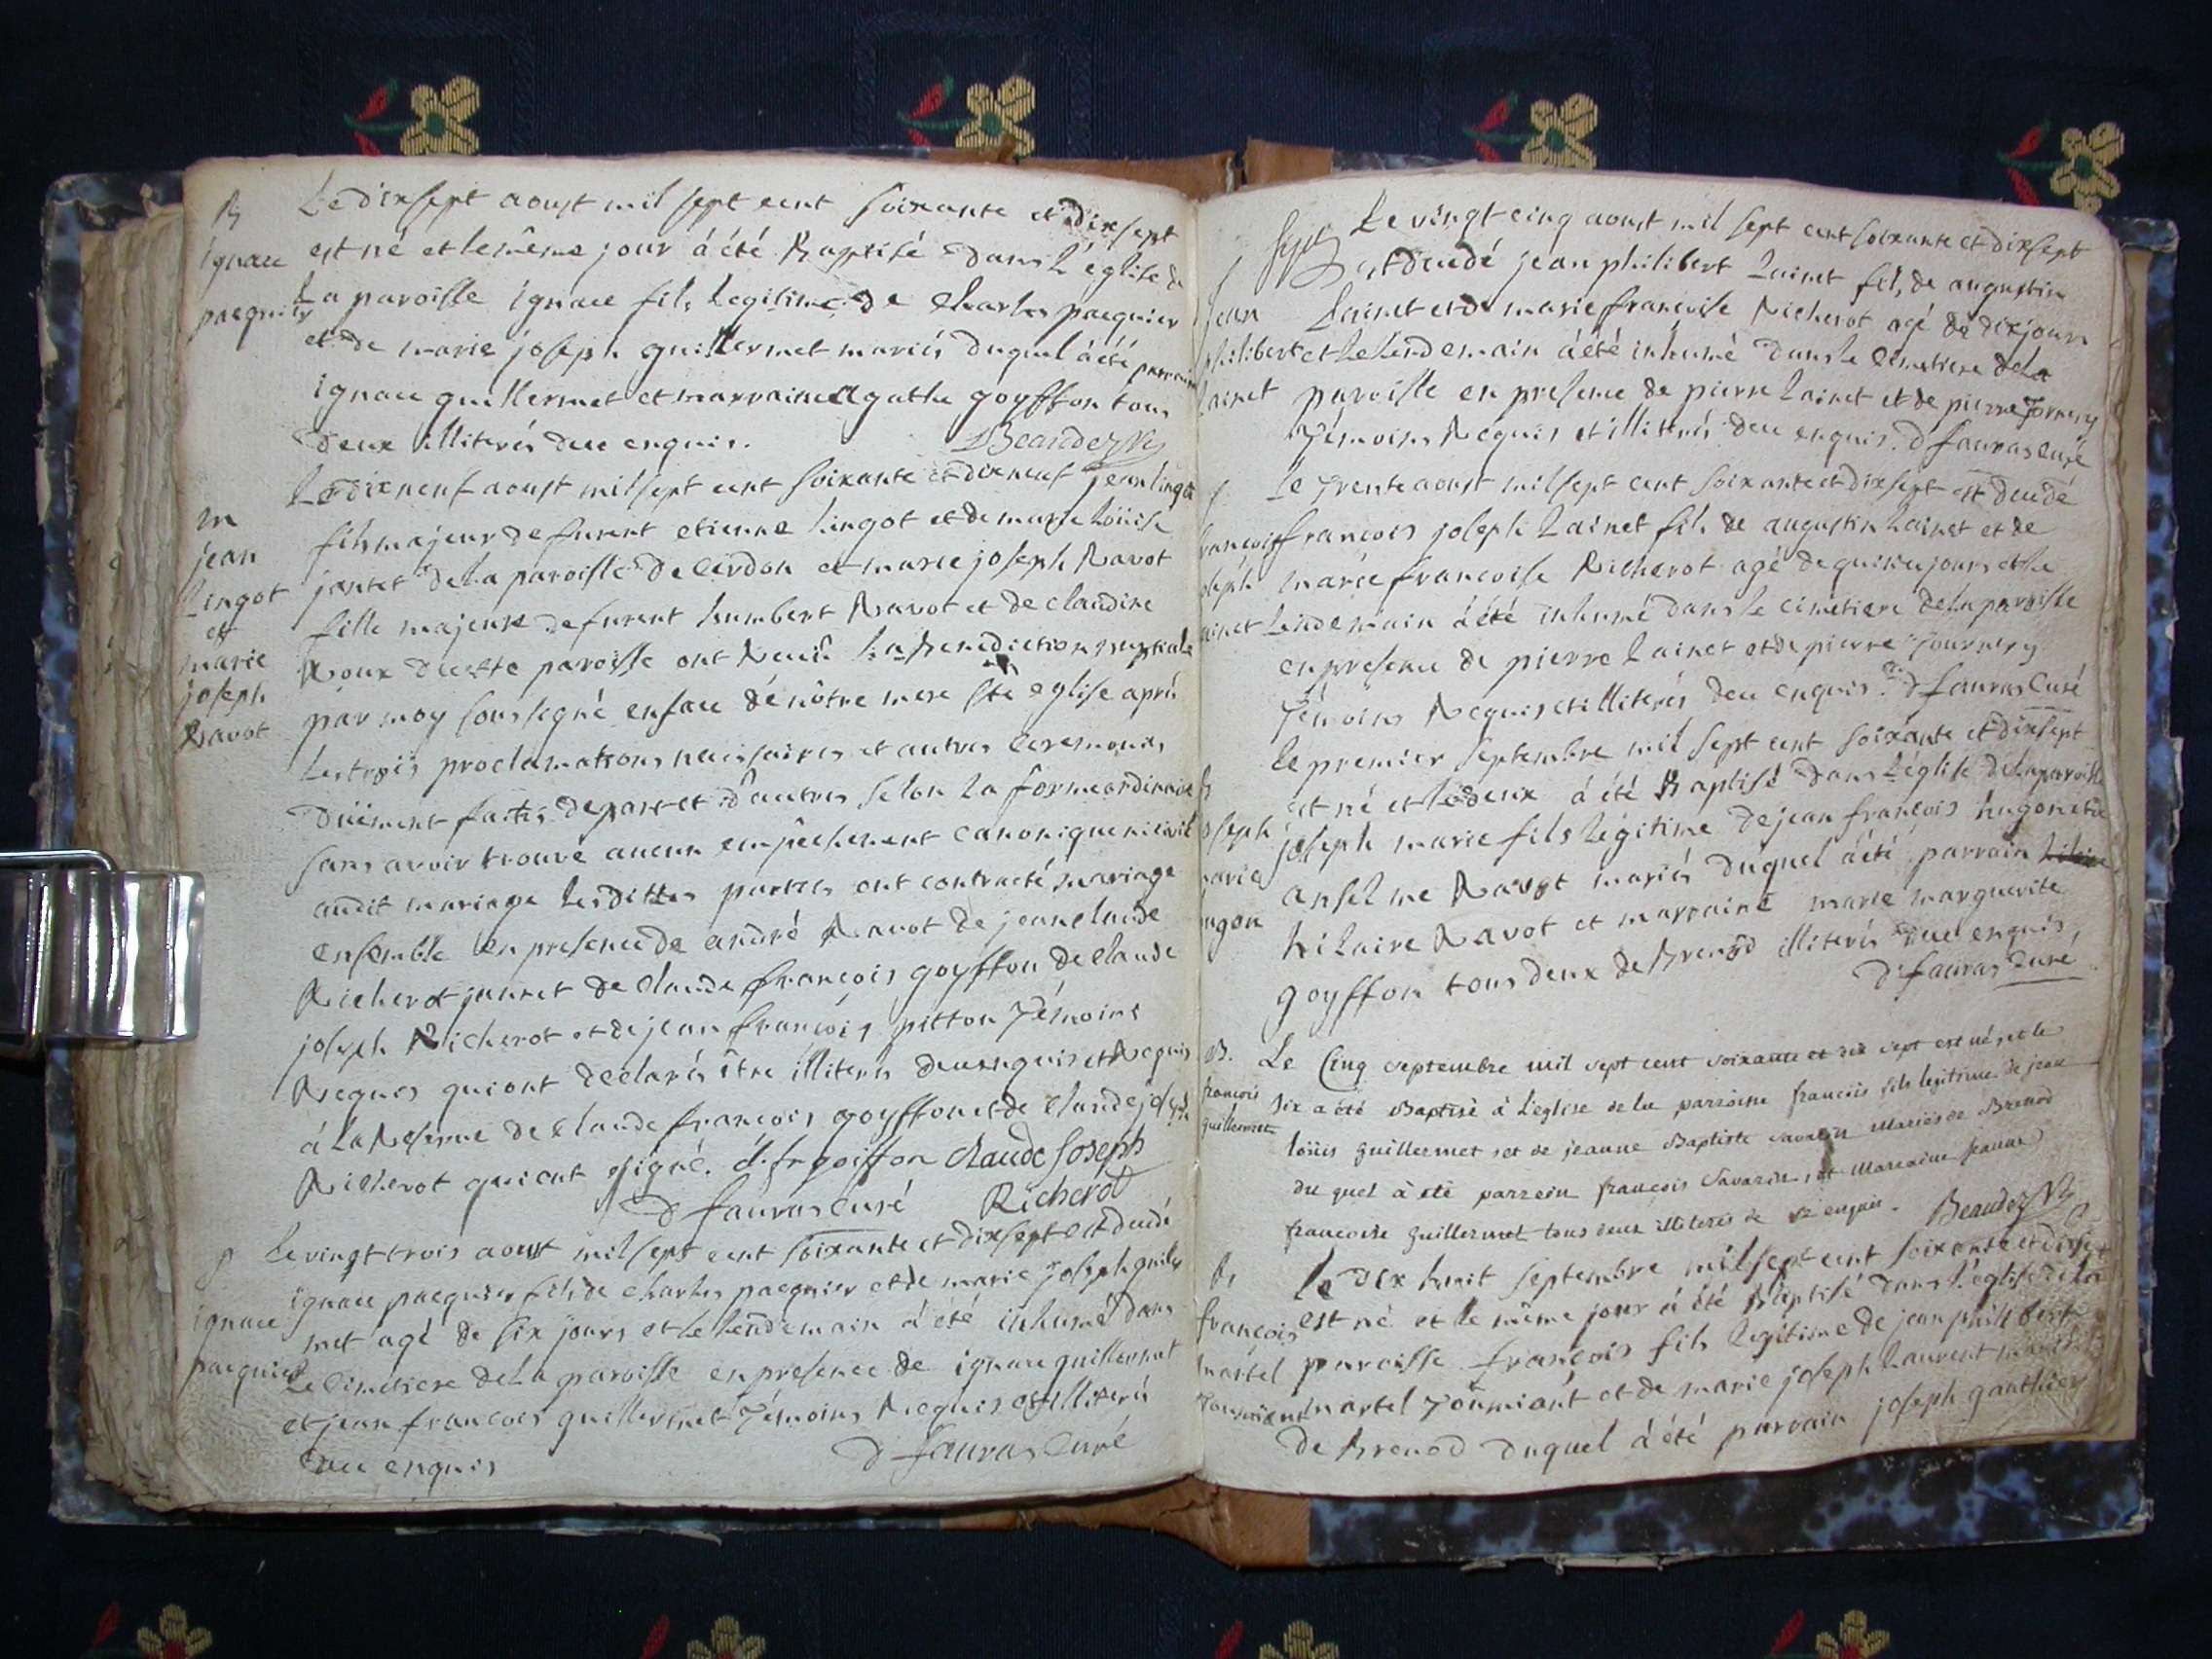 B
ignace
pacquier
Le dixsept aoust mil sept cent soixante et dixsept
est né et le même jour á été Baptisé dans L'église de
La paroisse ignace fils Legitime de Charles pacquier
et de marie joseph guillermet mariés duquel á été parrain
ignace guillermet et marraine agathe goyffon tous
deux illiterés de ce enquis. Beaudez Vic
m
jean
Lingot
et
marie
joseph
Ravot
Le dix neuf aoust mil sept cent soixante et dix neuf jean lingot
fils majeur de furent etienne Lingot et de marie Loüise
jantet de La paroisse de Cerdon et marie joseph Ravot
fille majeure de furent humbert Ravot et de claudine
Roux de cette paroisse ont Receu La Benediction nuptiale
par moy soussegné en face de nôtre mere Ste eglise aprés
Les trois proclamations necessaires et autres ceremonies
düement faites de part et d'autres selon La forme ordinaire
sans avoir trouvé aucun empêchement canonique ni civil
audit mariage Lesdittes parties ont contracté mariage
ensemble en presence de andré Ravot de jean claude
Richerot jannet de Claude françois goyffon de Claude
joseph Richerot et de jean françois pitton Témoins
Requis qui ont declarés être illiterés de ce enquis et Requis
á La Reserve de Claude françois goyffon et de Claude joseph
Richerot qui ont signé. c. f. goiffon Claude Joseph
D fauras Curé Richerot
ignace
pacquier
Le vingt trois aoust mil sept cent soixante et dixsept est decedé
ignace pacquier fils de Charles pacquier et de marie joseph guiller
met agé de six jours et le Lendemain á été inhumé dans
Le Cimetiere de La paroisse en presence de ignace guillermet
et jean francois guillermet Témoins Requis et illiterés
de ce enquis D fauras Curé
jean
philibert
Lainet
Le vingt cinq aoust mil sept cent soixante et dixsept
est decedé jean philibert Lainet fils de augustin
Lainet et de marie francoise Richerot agé de dix jours
et Le Lendemain á été inhumé dans le Cimetiere de La
paroisse en presence de pierre Lainet et de pierre Tornery
Témoins Requis et illiterés de ce enquis. D fauras Curé
françois
joseph
Lainet
Le Trente aoust mil sept cent soixante et dixsept est decedé
francois joseph Lainet fils de augustin Lainet et de
marie francoise Richerot agé de quinze jours et le
Lendemain á été inhumé dans le cimetiere de La paroisse
en presence de pierre Lainet et de pierre Journery
Témoins Requis et illiterés de ce enquis. D fauras Curé
B
joseph
marie
hugon
Le premier septembre mil sept cent soixante et dixsept
est né et le deux á été Baptisé dans L'église de La paroisse
joseph marie fils Légitime de jean françois hugon et de
anselme Ravot mariés duquel á été parrain
hilaire Ravot et marraine marie marguerite
goyffon tous deux de Brenod illiterés de ce enquis,
D fauras Curé
B.
francois
guillermet
Le Cinq septembre mil sept cent soixante et dix sept est né, et le
six a été Baptisé á L'eglise de la parroisse francois fils legitime de jean
loüis guillermet, et de jeanne Baptiste savarin Mariés de Brenod
du quel á été parrein francois Savarin, et Marraine jeanne
francoise guillermet tous deux illiterés de ce enquis. Beaudez Vic
B
françois
martel
Tourniant
Le dix huit septembre mil sept cent soixante et dixsept
est né et le même jour á été Baptisé dans L'église de La
paroisse françois fils Legitime de jean philibert
martel Tourniant et de marie joseph Laurent mariés
de Brenod duquel á été parrain joseph gauthier